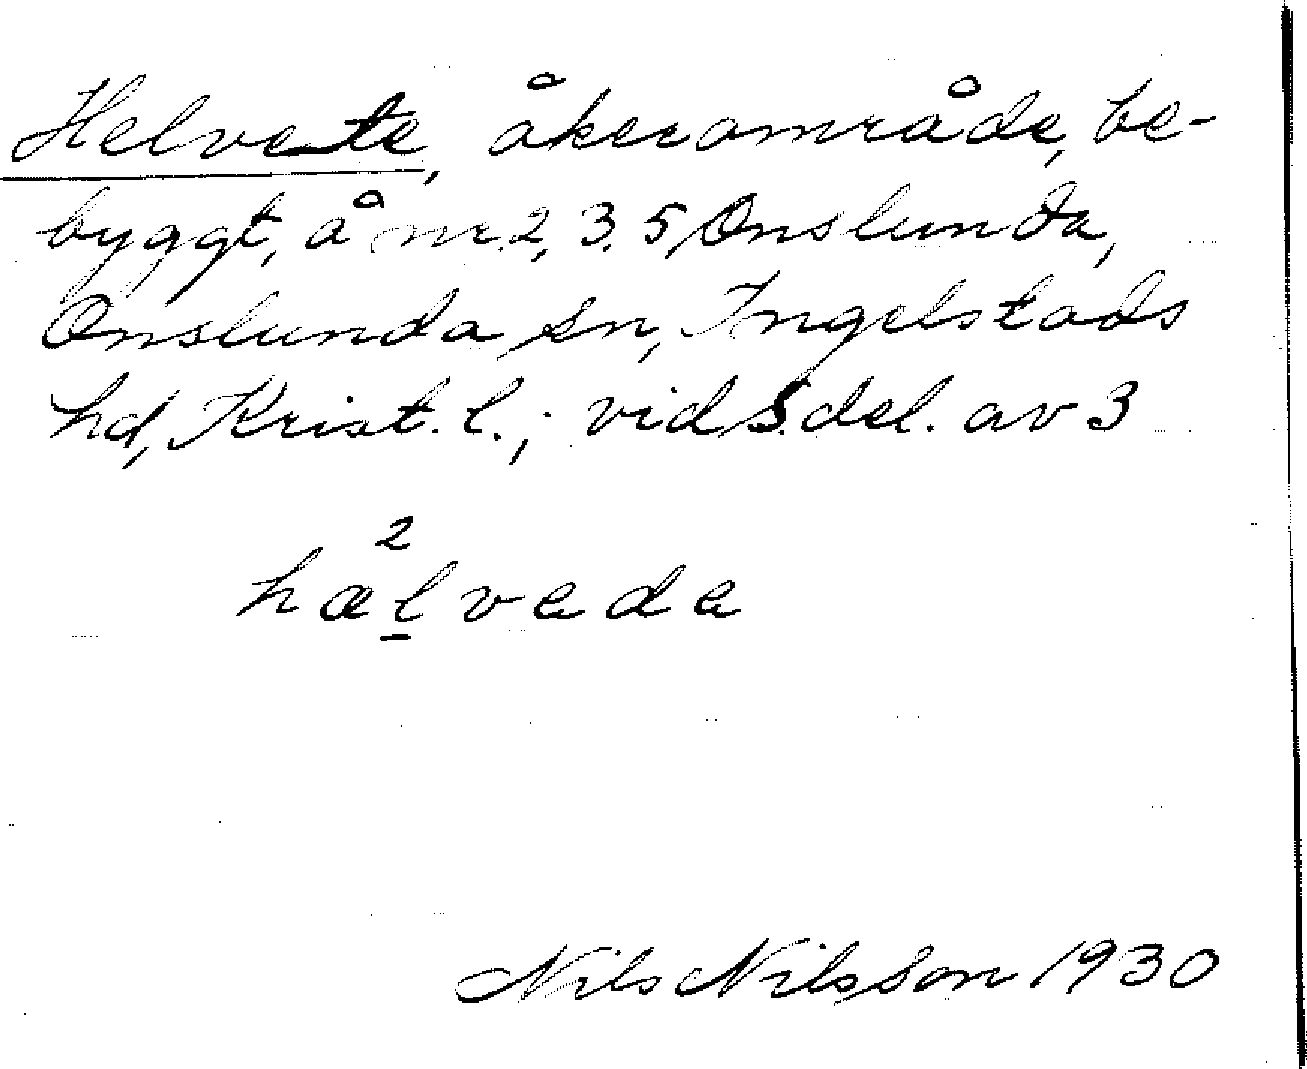 Helvete, åkerområde, be-
byggt, å nr. 2, 3. 5, Onslunda,
Onslunda sn, Ingelstads
hd, Krist. l.; vid S. del. av 3
2
hælvede
Nils Nilsson 1930